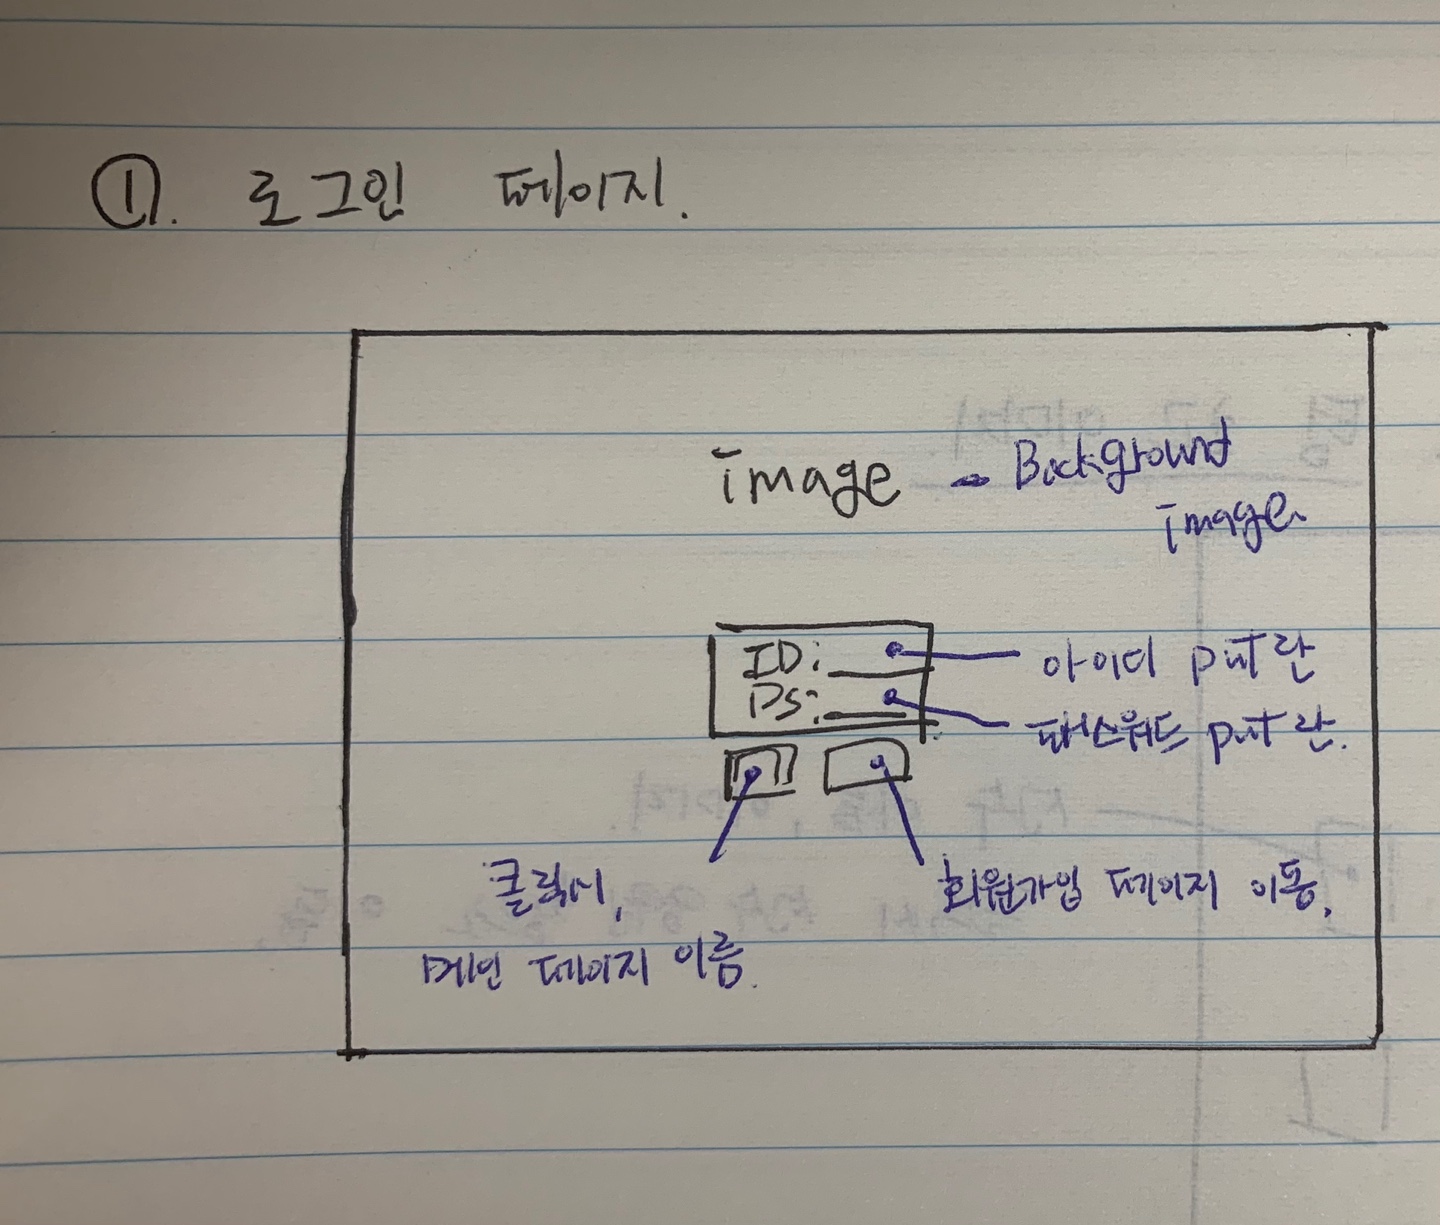 ①. 로그인 페이지.
image - Background
image
ID:
PS:
아이디 put란
패스워드 put란.
클릭시,
메인 페이지 이름.
회원가입 페이지 이동.